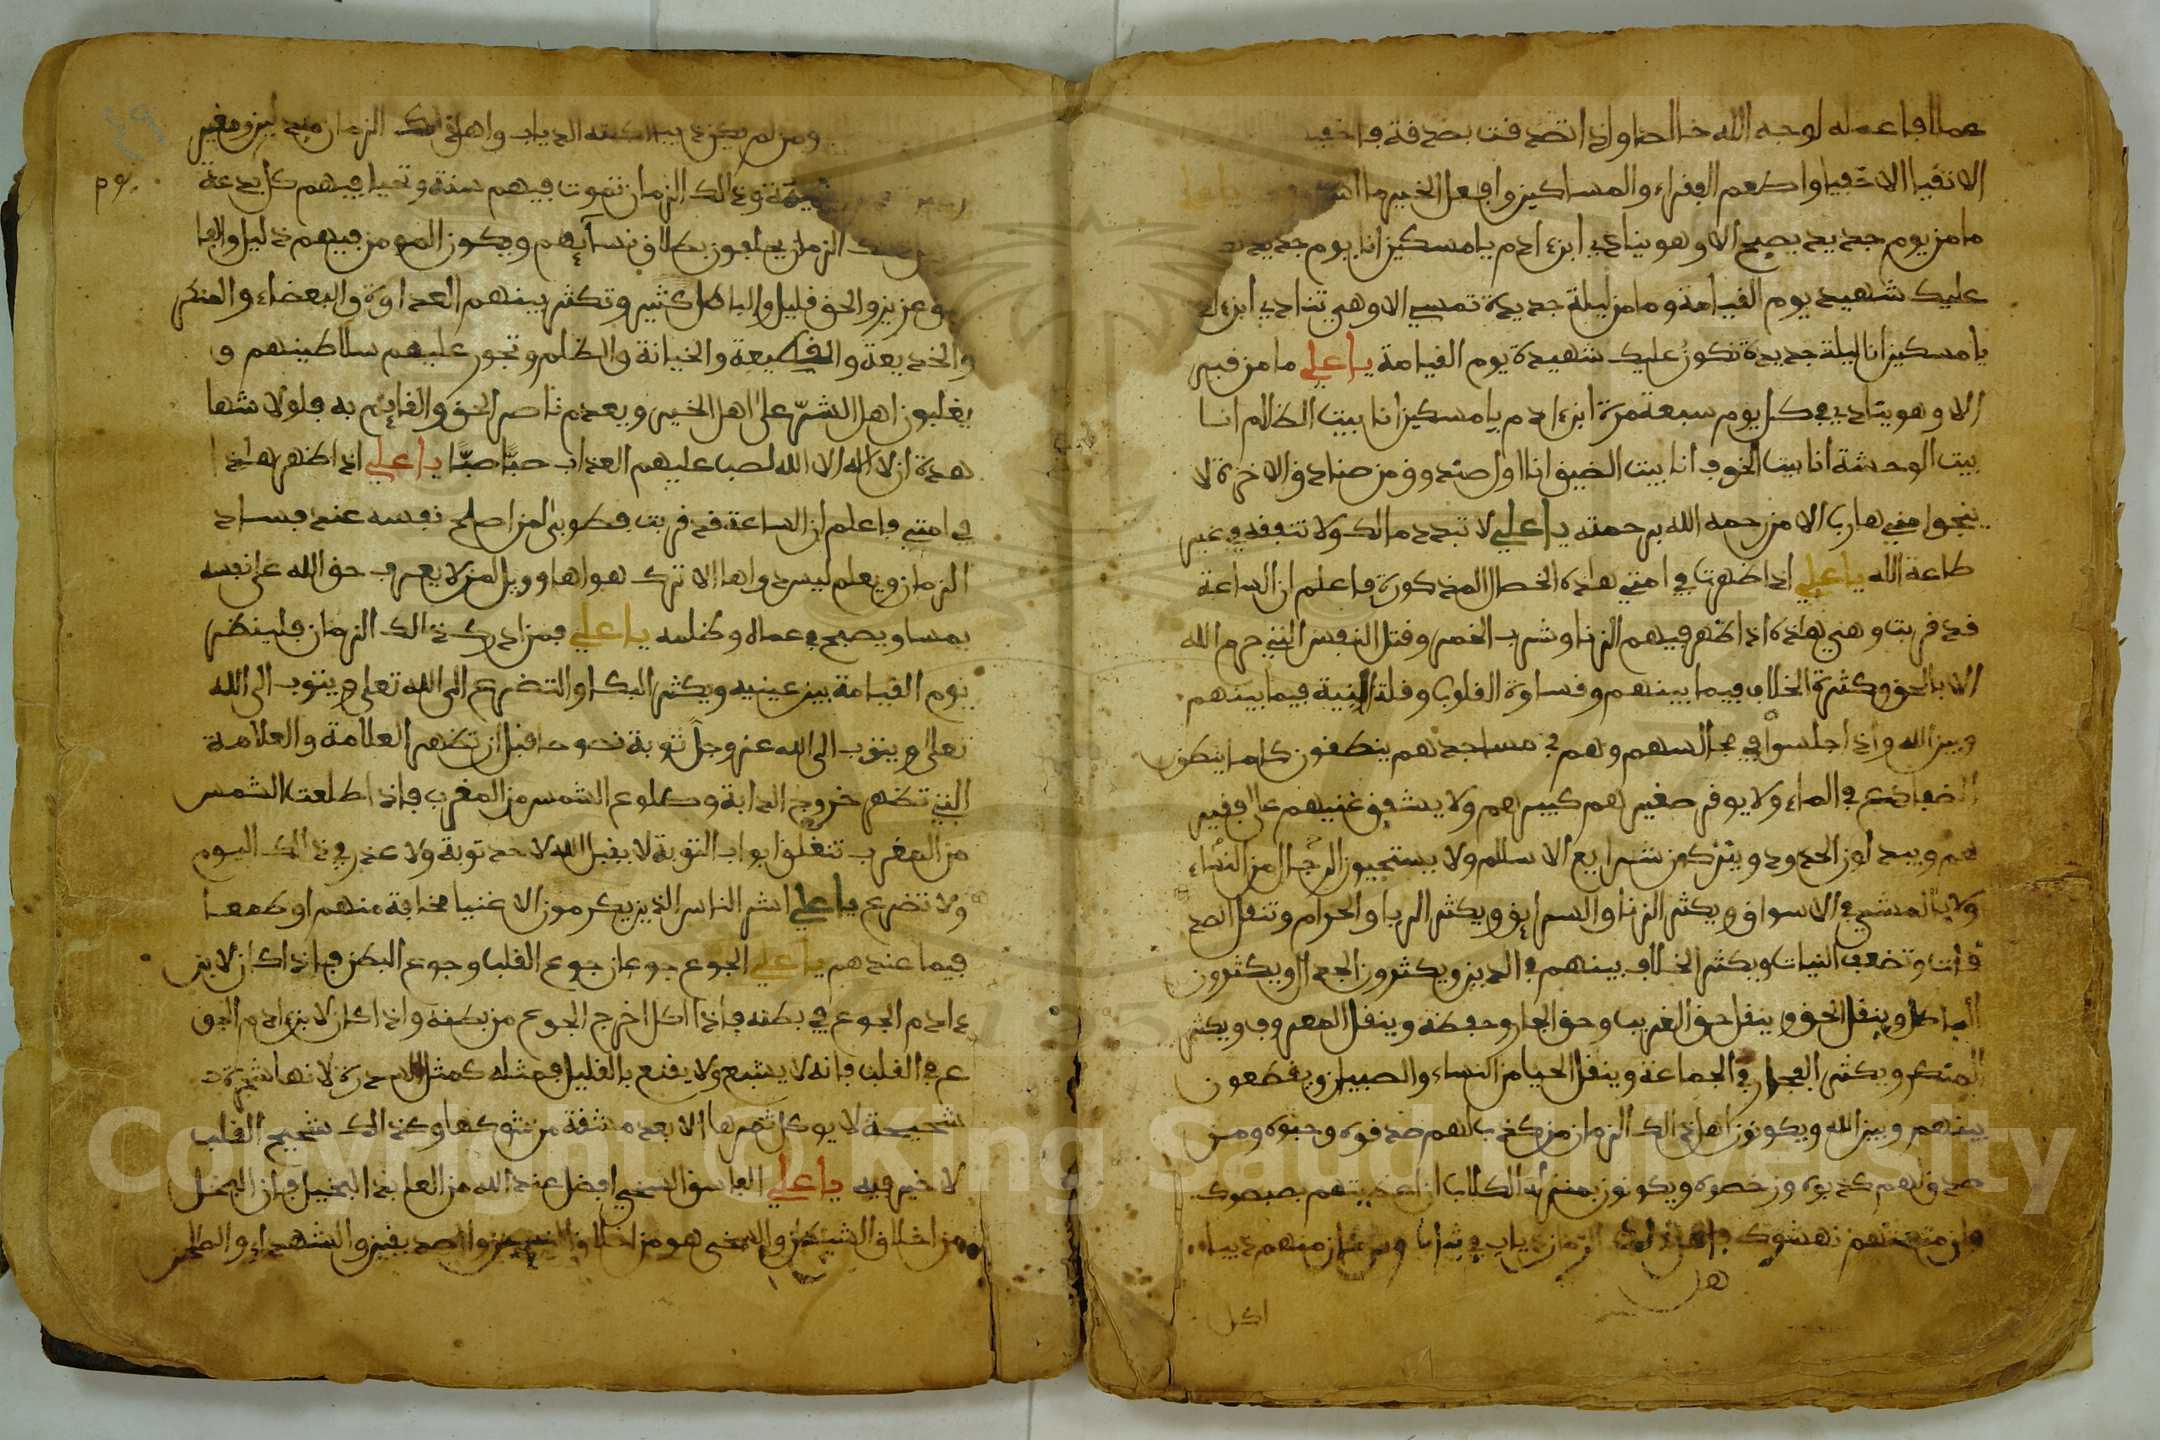 عملا فاعمله لوجه الله خالصا واذا تصدقت بصدقة فاخف
الاتقيا الاخفيا واطعم الفقراء والمساكين وافعل الخير ما
ما من يوم جديد يصبح الا وهو ينادي ابن ءادم يا مسكين انا يوم جديد
عليك شهيد يوم القيامة وما من ليلة جديدة تمسي الا وهي تنادي ابن
يا مسكين انا ليلة جديدة نكون عليك شهيدة يوم القيامة يا علي ما من قبر
الا وهو ينادي في كل يوم سبعة مرة ابن ءادم يا مسكين انا بيت الظلام انا
بيت الوحشة انا بيت الخوف انا بيت الضيق انا اول صندوق من صناديق الاخرة لا
ينجوا مني هاربا الا من رحمه الله برحمته يا علي لا تبدد مالك ولا تنفقه في غير
طاعة الله يا علي اذا ظهرت في امتي هذه الخصال المذكورة فاعلم ان الساعة
قد قربت وهي هذه اذا ظهر فيهم الزنا وشرب الخمر وقتل النفس التي حرم الله
الا بالحق وكثرة الخلاف فيما بينهم وقساوة القلوب وقلة النية فيما بينهم
وبين الله واذا جلسوا في مجالسهم وهم في مساجدهم ينطقون كاما ينطق
الضفاضع في الماء ولا يوقر صغيرهم كبيرهم ولا يشفق غنيهم على فقير
هم ويبدلون الحدود ويتركون شرايع الاسلام ولا يستحيون الرجال من النساء
ولا بالمشي في الاسواق ويكثر الزنا والسرايق ويكثر الربا والحرام وتنقل الصد
قات وتضعف النيات ويكثر الخلاف بينهم في الدين ويكثرون الجدال ويكثرون
الباطل وينقل الحق وينقل حق الغريب وحق الجار وحفظه وينقل المعروف ويكثر
المنكر ويكثر الفجار في الجماعة وينقل الحيا من النساء والصبيان ويقطعون
بينهم وبين الله ويكونون اهل ذالك الزمان من كذب لهم صدقوه وحبوه ومن
صدق لهم كذبوه ورخصوه ويكونون بمنزلة الكلاب ان اعطيتهم بصبصوك
وان منعتهم نهشوك الزمان ذياب في ثياب ومن كان منهم ذيبا
اكل
ومن لم يكن ذيبا اكلته الذياب واهل ذلك الزمان
ذالك الزمان تموت فيهم سنة وتحيا فيهم كل بدعة
الزمان يحلفون بطلاق نسآيهم ويكون المومن فيهم ذليل والفا
سق عزيز والحق قليل والباطل كثير وتكثر بينهم العداوة والبغضاء والمنكر
والخديعة والقطيعة والخيانة والظلم وتجور عليهم سلاطينهم و
يغلبون اهل الشر على اهل الخير ويعدم ناصر الحق والقايم به فلولا شها
هدة ان لا اله الا الله لصب عليهم العذاب صبا صبا يا علي اذا ظهر هذا
في امتي فاعلم ان الساعة قد قربت فطوبى لمن اصلح نفسه عند فساد
الزمان ويعلم ليس دواها الا ترك هواها وويل لمن لا يعرف حق الله على نفسه
بمسا ويصبح في عماه وظلمه يا علي فمن ادرك ذالك الزمان فلينظر
يوم القيامة بين عينيه ويكثر البكا والتضرع الى الله تعلى ويتوب الى الله
تعلى ويتوب الى الله عز وجل توبة نصوحا قبل ان تظهر العلامة والعلامة
التي تظهر خروج الدابة وطلوع الشمس من المغرب فاذا طلعت الشمس
من المغرب تنغلق ابواب التوبة لا يقبل الله لاحد توبة ولا عذر في ذالك اليوم
ولا تضرع يا علي اشر الناس الذين يكرمون الاغنيا مخافة منهم او طمعا
فيما عندهم يا علي الجوع جوعان جوع القلب وجوع البطن فاذا كان لابن
ءادم الجوع في بطنه فاذا اكل اخرج الجوع من بطنه واذا كان لابن ءادم الجو
ع في القلب فانه لا يشبع ولا يقنع بالقليل فمثله كمثل السدرة لانها شجرة
شحيحة لا يوكل ثمرها الا بعد مشقة من شوكها وكذالك شحيح القلب
لا خير فيه يا علي الفاسق السخي افضل عند الله من العابد البخيل فان البخل
من اخلاق الشيطان والسخى هو من اخلاق النبيين والصديقين والشهداء والصلحـ
Copyright © King Saud University